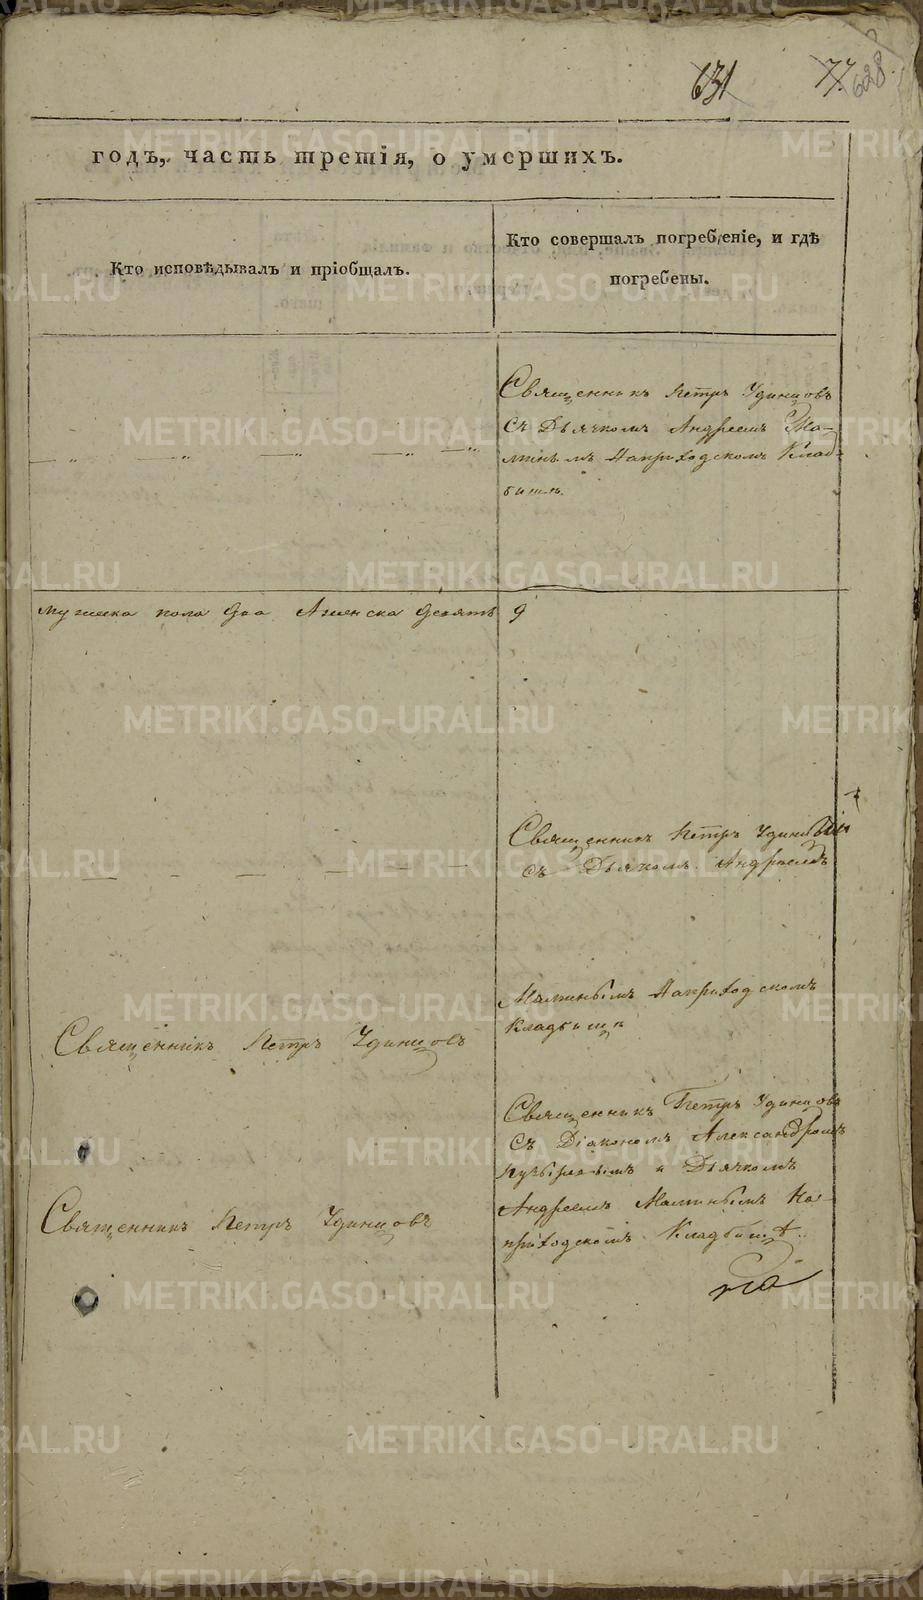 631 77 628
годъ, часть третія, о умершихъ.
Кто исповѣдывалъ и пріобщалъ.
Кто совершалъ погребеніе, и гдѣ
погребены.
Священникъ Петръ Удинцовъ
съ Дьячкомъ Андреемъ Ма-
минымъ наприходскомъ Клад-
бищѣ
мужеска пола два Аженска девять 9
Священникъ Петръ Удинцовъ
съ Дьячкомъ Андреемъ
Маминымъ наприходскомъ
Кладбищѣ
Священникъ Петръ Удинцовъ
Священникъ Петръ Удинцовъ
съ Діакономъ Александромъ
и Дьячкомъ
Священникъ Петръ Удинцовъ
Андреемъ Маминымъ на
приходскомъ Кладбищѣ.
METRIKI.GASO-URAL.RU